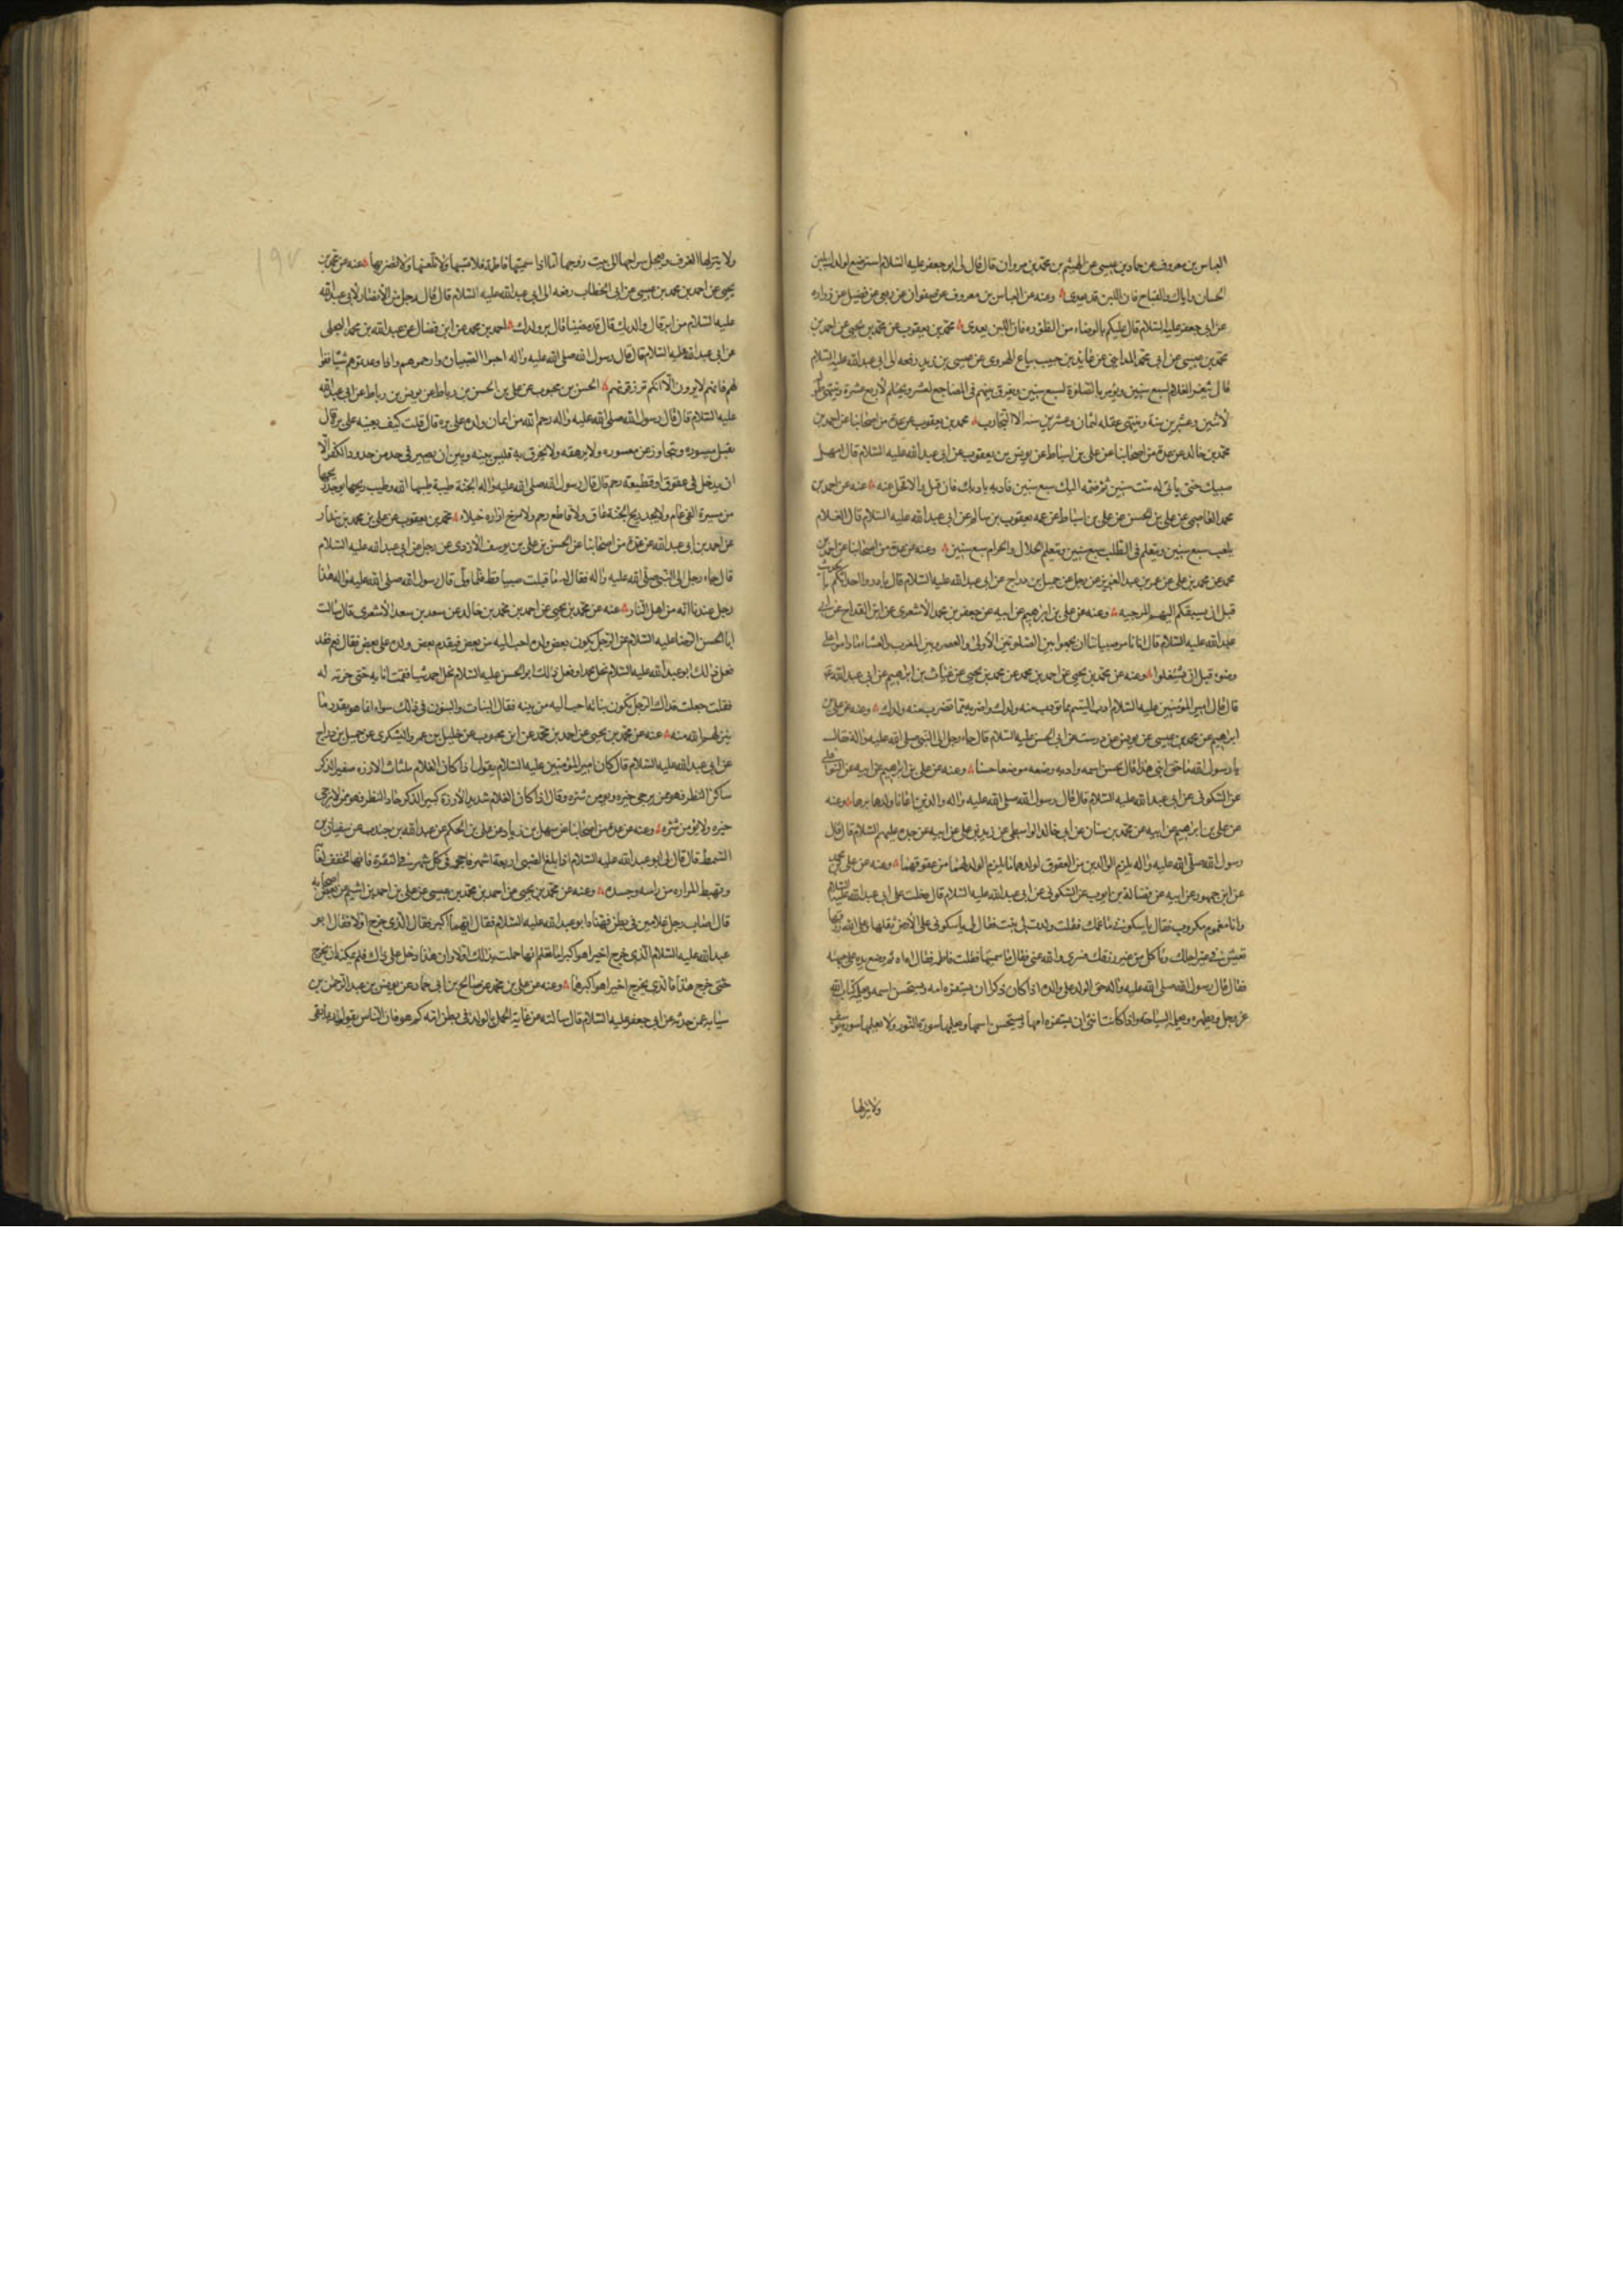 العباس بن معروف عن حماد بن عيسى عن الهيثم بن محمد بن مروان قال قال لى ابو جعفر عليه السلام استرضع لولدك بلبن
الحسان واياك والقباح فان اللبن قد يعدى وعنه عن العباس بن معروف عن صفوان عن ربعى عن فضيل عن زراره
عن ابى جعفر عليه السلام قال عليكم بالوضاء من الظئورة فان اللبن يعدى محمد بن يعقوب عن محمد بن يحيى عن احمد بن
محمد بن عيسى عن ابى محمد المداينى عن عايذ بن حبيب بياع الهروى عن عيسى بن زيد رفعه الى ابى عبد الله عليه السلام
قال يثغر الغلام لسبع سنين ويؤمر بالصلوة لسبع سنين ويفرق بينهم فى المضاجع لعشر ويحتلم لاربع عشرة وينتهى طوله
لاثنين وعشرين سنة وينتهى عقله لثمان وعشرين سنه الا التجارب محمد بن يعقوب عن عدة من اصحابنا عن احمد بن
محمد بن خالد عن عدة من اصحابنا عن على بن اسباط عن يونس بن يعقوب عن ابى عبد الله عليه السلام قال امهل
صبيك حتى يأتى له ست سنين ثم ضمه اليك سبع سنين فادبه بادبك فان قبل والا فخل عنه عنه عن احمد بن
محمد العاصمى عن على بن الحسن عن على بن اسباط عن عمه يعقوب بن سالم عن ابى عبد الله عليه السلام قال الغلام
يلعب سبع سنين ويتعلم فى الكتاب سبع سنين ويتعلم الحلال والحرام سبع سنين وعنه عن عدة من اصحابنا عن احمد بن
محمد عن محمد بن على عن عمر بن عبد العزيز عن رجل عن جميل بن دراج عن ابى عبد الله عليه السلام قال بادروا احداثكم بالحديث
قبل ان يسبقكم اليهم المرجيه وعنه عن على بن ابراهيم عن ابيه عن جعفر بن محمد الاشعرى عن ابن القداح عن ابى
عبد الله عليه السلام قال انا نامر صبياننا ان يجمعوا بين الصلوتين الاولى والعصر وبين المغرب والعشاء ما داموا على
وضوء قبل ان يشتغلوا وعنه عن محمد بن يحيى عن احمد بن محمد عن محمد بن يحيى عن غياث بن ابراهيم عن ابى عبد الله ع
قال قال امير المؤمنين عليه السلام ادب اليتيم بما تودب منه ولدك واضربه بما تضرب منه ولدك وعنه عن على بن
ابراهيم عن محمد بن عيسى عن يونس عن درست عن ابى الحسن عليه السلام قال جاء رجل الى النبى صلى الله عليه واله فقال
يا رسول الله ما حق ابنى هذا قال تحسن اسمه وادبه وضعه موضعا حسنا وعنه عن على بن ابراهيم عن ابيه عن النوفلى
عن السكونى عن ابى عبد الله عليه السلام قال قال رسول الله صلى الله عليه واله رحم الله والدين اعانا ولدهما برهما وعنه
عن على بن ابراهيم عن ابيه عن محمد بن سنان عن ابى خالد الواسطى عن زيد بن على عن ابيه عن جده عليهم السلام قال قال
رسول الله صلى الله عليه واله يلزم الوالدين من العقوق لولدهما ما يلزم الولد لهما من عقوقهما وعنه عن على بن محمد
عن ابن جمهور عن ابيه عن فضالة بن ايوب عن السكونى عن ابى عبد الله عليه السلام قال دخلت على ابى عبد الله عليه السلام
وانا مغموم مكروب فقال يا سكونى ما غمك فقلت ولدت لى بنت فقال لى يا سكونى على الارض ثقلها وعلى الله رزقها
تعيش فى غير اجلك وتأكل من غير رزقك فسرى والله عنى فقال ما سميتها فقلت فاطمه فقال اه اه ثم وضع يده على جبهته
فقال قال رسول الله صلى الله عليه واله حق الولد على والده اذا كان ذكرا ان يستفره امه ويستحسن اسمه ويعلمه كتاب الله
عز وجل ويطهره ويعلمه السباحة واذا كانت انثى ان يستفره امها ويستحسن اسمها ويعلمها سورة النور ولا يعلمها سورة يوسف
ولا ينزلها
ولا ينزلها الغرف ويعجل سراحها الى بيت زوجها اما اذا سميتها فاطمة فلا تسبها ولا تلعنها ولا تضربها عنه عن محمد بن
يحيى عن احمد بن محمد بن عيسى عن ابى الخطاب رفعه الى ابى عبد الله عليه السلام قال قال رجل من الانصار لابى عبد الله
عليه السلام من ابر قال والديك قال قد مضيا قال بر ولدك احمد بن محمد عن ابن فضال عن عبد الله بن محمد البجلى
عن ابى عبد الله عليه السلام قال قال رسول الله صلى الله عليه واله احبوا الصبيان وارحموهم واذا وعدتموهم شيئا ففوا
لهم فانهم لا يرون الا انكم ترزقونهم الحسن بن محبوب عن على بن الحسن بن رباط عن يونس بن رباط عن ابى عبد الله
عليه السلام قال قال رسول الله صلى الله عليه واله رحم الله من اعان ولده على بره قال قلت كيف يعينه على بره قال
يقبل ميسوره ويتجاوز عن معسوره ولا يرهقه ولا يخرق به فليس بينه وبين ان يصير فى حد من حدود الكفر الا
ان يدخل فى عقوق او قطيعة رحم قال قال رسول الله صلى الله عليه واله الجنة طيبة طيبها الله وطيب ريحها يوجد ريحها
من مسيرة الفى عام ولا يجد ريح الجنة عاق ولا قاطع رحم ولا مرخ ازاره خيلاء محمد بن يعقوب عن على بن محمد بن بندار
عن احمد بن ابى عبد الله عن عدة من اصحابنا عن الحسن بن على بن يوسف الازدى عن رجل عن ابى عبد الله عليه السلام
قال جاء رجل الى النبى صلى الله عليه واله فقال له ما قبلت صبيا قط فلما ولى قال رسول الله صلى الله عليه واله هذا
رجل عندنا انه من اهل النار عنه عن محمد بن يحيى عن احمد بن محمد بن خالد عن سعد بن سعد الاشعرى قال سالت
ابا الحسن الرضا عليه السلام عن الرجل يكون بعض ولده احب اليه من بعض فيقدم بعض ولده على بعض فقال نعم قد
فعل ذلك ابو عبد الله عليه السلام نحل محمدا وفعل ذلك ابو الحسن عليه السلام نحل احمد شيئا فقمت انا به حتى حزته له
فقلت جعلت فداك الرجل يكون بناته احب اليه من بنيه فقال البنات والبنون فى ذلك سواء انما هو بقدر ما
ينزلهم الله منه عنه عن محمد بن يحيى عن احمد بن محمد عن ابن محبوب عن خليل بن عمرو اليشكرى عن جميل بن دراج
عن ابى عبد الله عليه السلام قال كان امير المؤمنين عليه السلام يقول اذا كان الغلام ملتاث الازره صغير الذكر
ساكن النظر فهو ممن يرجى خيره ويؤمن شره وقال اذا كان الغلام شديد الازرة كبير الذكر حاد النظر فهو ممن لا يرجى
خيره ولا يؤمن شره وعنه عن عدة من اصحابنا عن سهل بن زياد عن على بن الحكم عن عبد الله بن جندب عن سفيان بن
السمط قال قال لى ابو عبد الله عليه السلام اذا بلغ الصبى اربعة اشهر فاحجمه فى كل شهر فى النقرة فانها تخفف لعابه
وتهبط المراره من راسه وجسده وعنه عن محمد بن يحيى عن احمد بن محمد بن عيسى عن على بن احمد بن اشيم عن بعض اصحابه
قال اصاب رجل غلامين فى بطن فهناه ابو عبد الله عليه السلام فقال ايهما اكبر فقال الذى خرج اولا فقال ابو
عبد الله عليه السلام الذى خرج اخيرا هو اكبر اما تعلم انها حملت بذلك اولا وان هذا دخل على ذاك فلم يمكنه ان يخرج
حتى خرج هذا فالذى يخرج اخيرا هو اكبرهما وعنه عن على بن محمد عن صالح بن ابى حماد عن يونس بن عبد الرحمن بن
سيابه عمن حدثه عن ابى جعفر عليه السلام قال سالته عن غاية الحمل بالولد فى بطن امه كم هو فان الناس يقولون ربما بقى